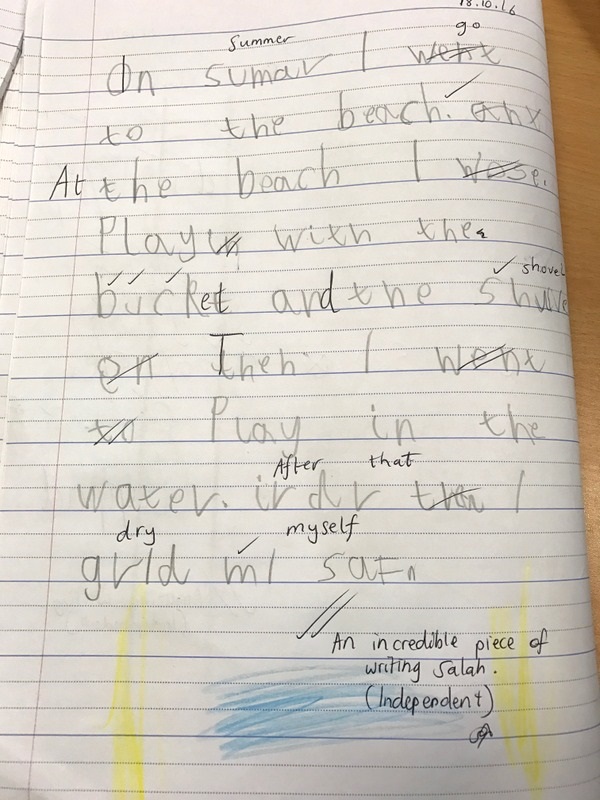 18.10.16
Summer go
On sumar I went
to the beach. anx
At the beach I wose.
Playin with the
shovel
bucket and the
on Then I went
to Play in the
After that
water. irdr then I
dry myself
grld mI
An incredible piece of
writing Salah.
(Independent)